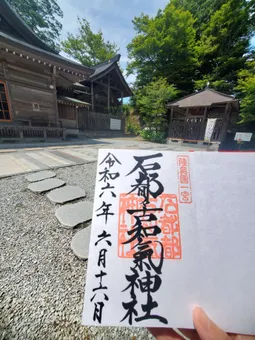 陸奥國一宮
石都々古和氣神社
令和六年六月十六日